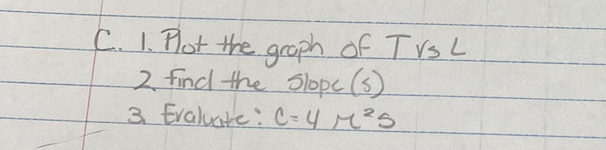 C. 1. Plot the graph of T vs L
2 find the slope (s)
3. Evaluate: C = 4 π²s